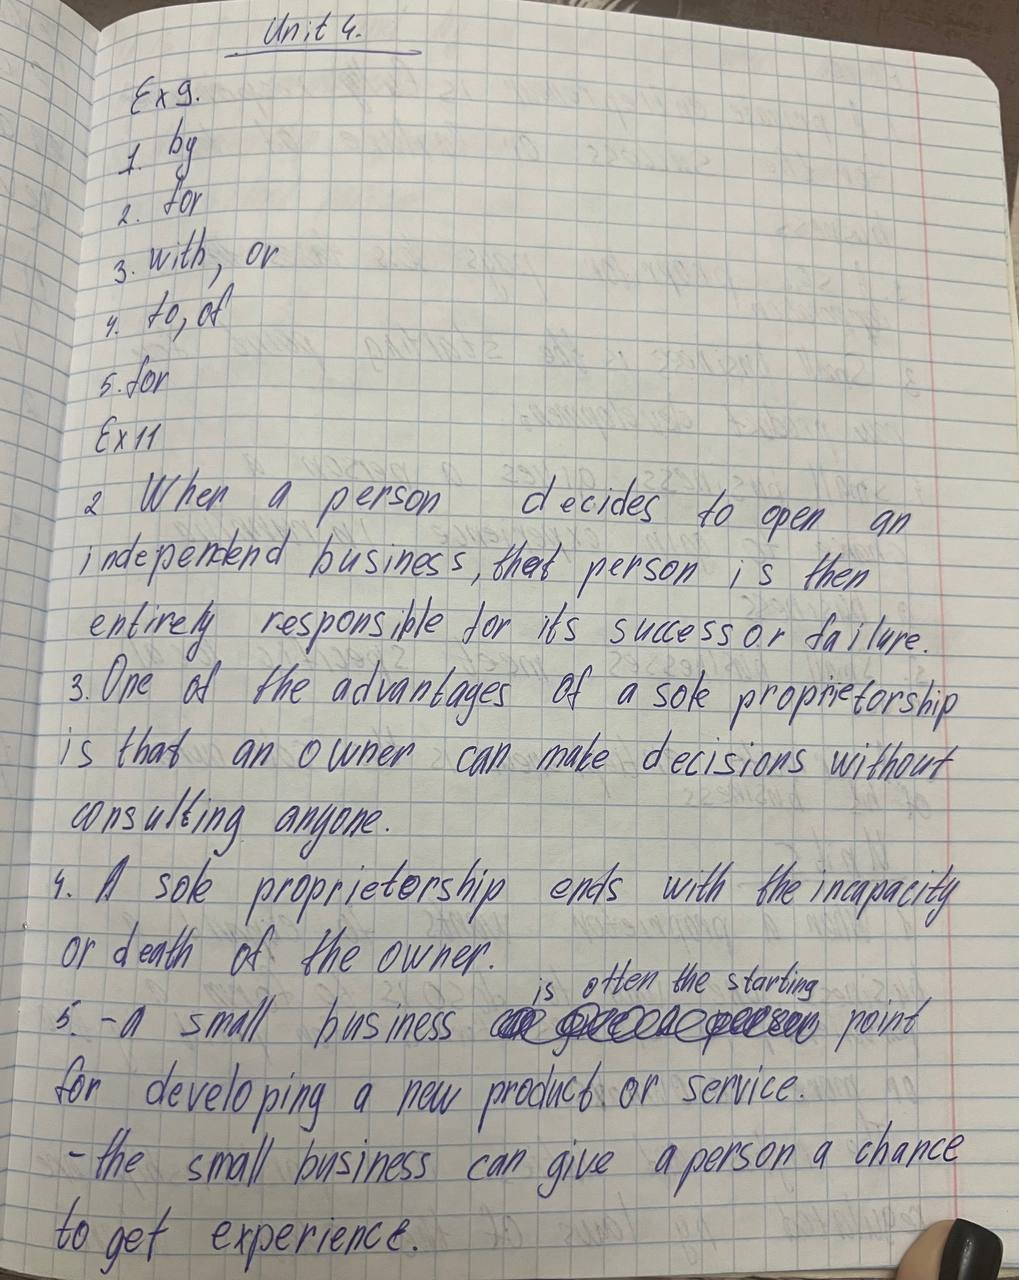 Unit 4.
Ex 9.
1. by
2. for
3. with, or
4. to, of
5. for
Ex 11
2 When a person decides to open an
independend business, that person is then
entirely responsible for its success or failure.
3. One of the advantages of a sole proprietorship
is that an owner can make decisions without
consulting anyone.
4. A sole proprietorship ends with the incapacity
or death of the owner.
is often the starting
5. - a small business point
for developing a new product or service.
- the small business can give a person a chance
to get experience.